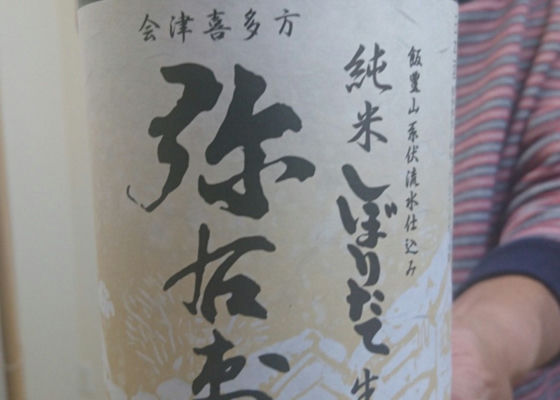 会津喜多方
飯豊山系伏流水仕込み
純米しぼりたて生
弥右衛